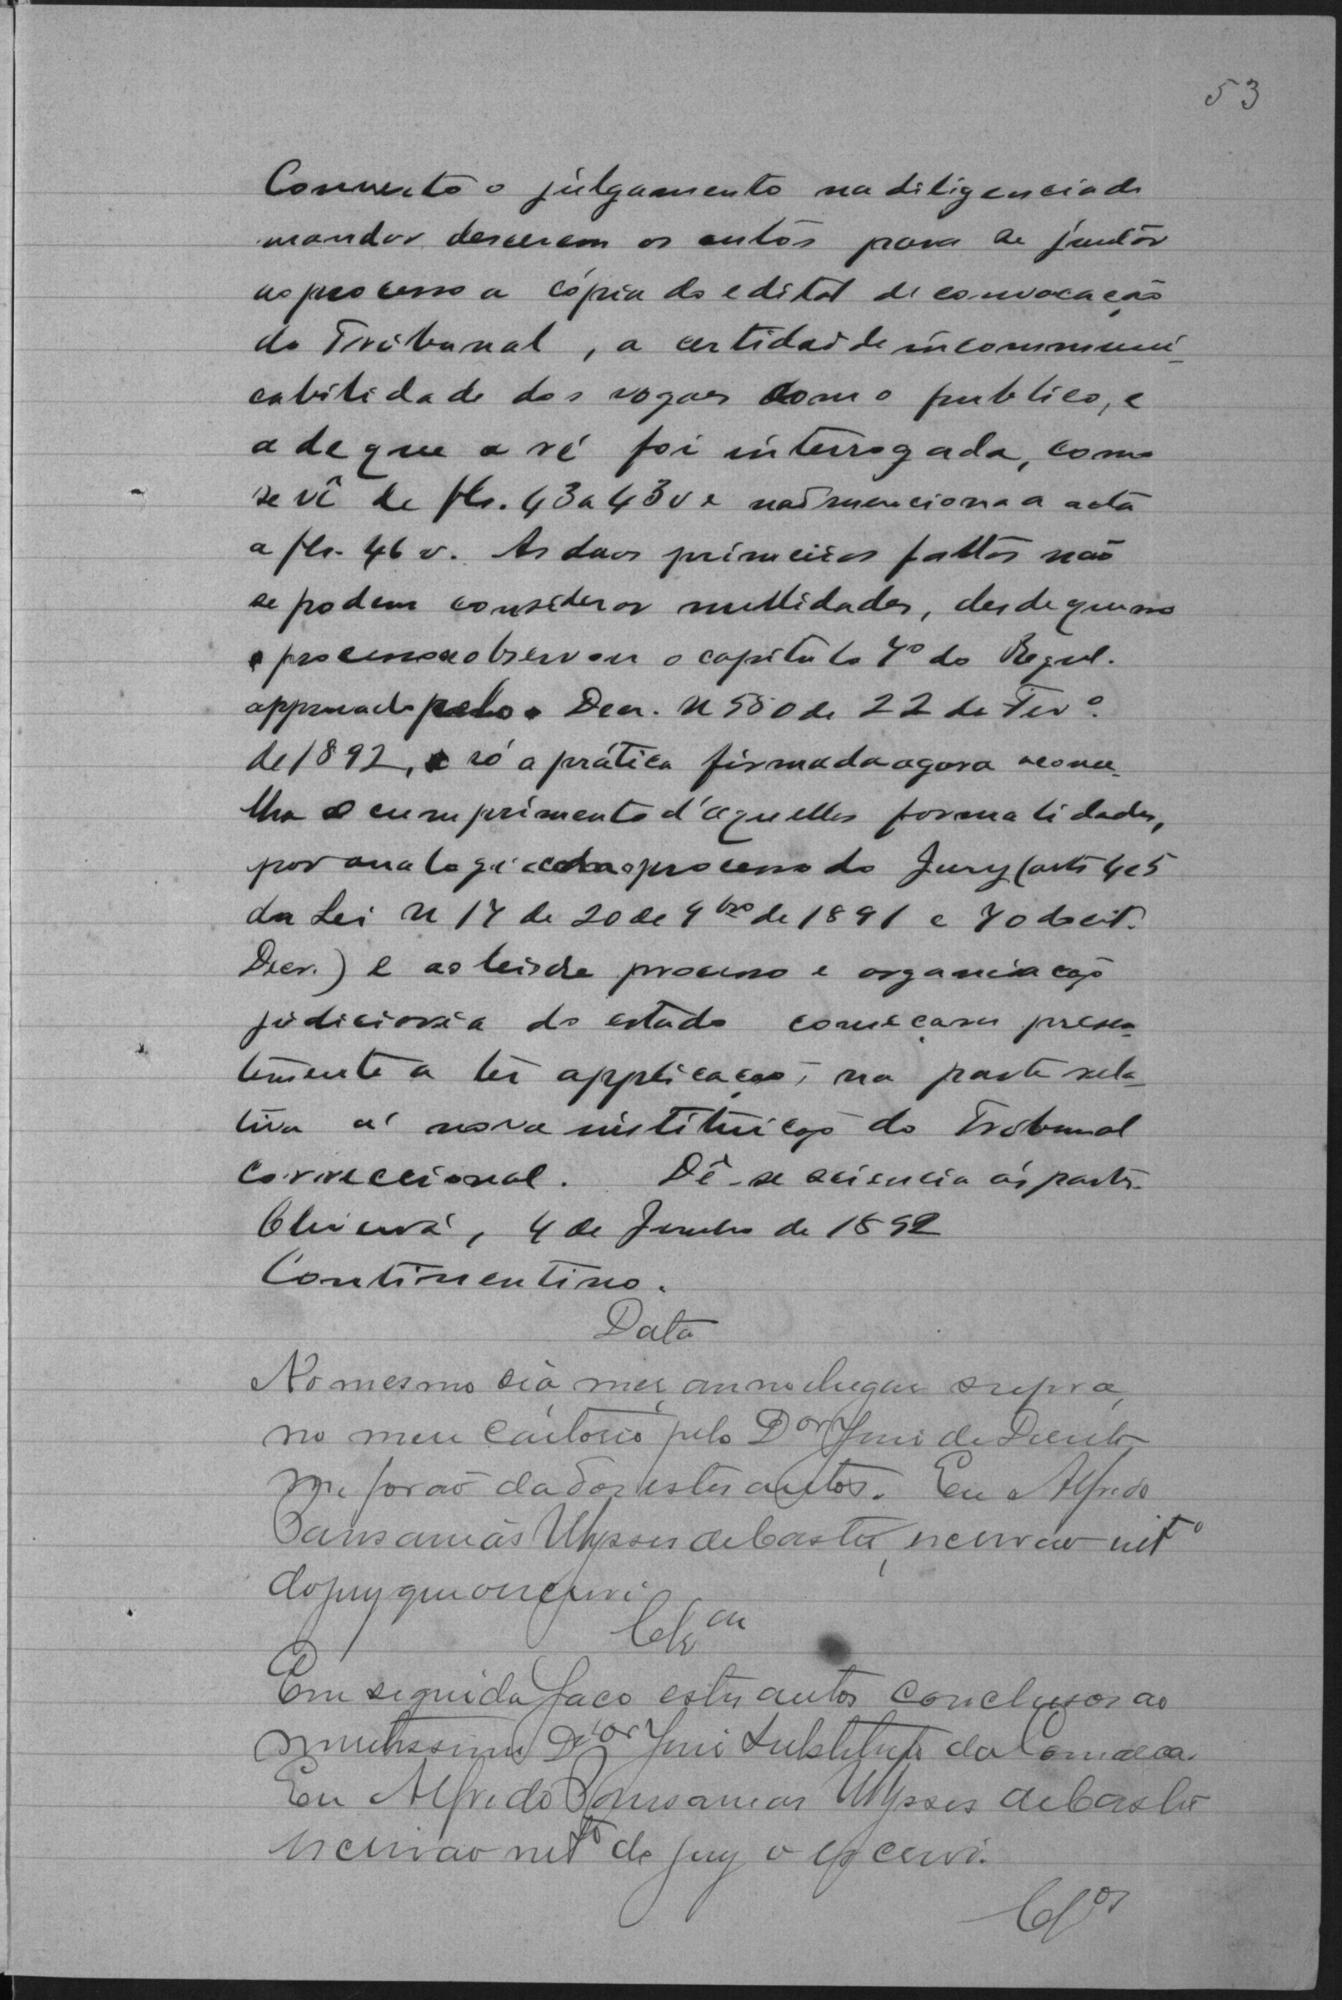 53
Converto o julgamento na diligencia de
mandar descerem os autos para se juntar
ao processo a cópia do edital de convocação
do Tribunal, a certidão de incommuni-
cabilidade dos vogaes com o publico, e
a de que a ré foi interrogada, como
se vê de fls. 43 a 43 v e não menciona a acta
a fls. 46 v. As duas primeiras faltas não
se podem considerar nullidades, desde que no
processo se observou o capitulo 7º do Regul.
approvado pelo Decr. N 580 de 22 de Fevº.
de 1892, e só a prática firmada agora aconse-
lha o cumprimento d'aquellas formalidades,
por analogia do processo do Jury (arts 4 e 5
da Lei N 17 de 20 de 9bro de 1891 e 70 do cit.
Decr.) e as leis de processo e organisação
judiciaria do estado começam presen-
temente a ter applicação, na parte rela-
tiva á nova instituição do Tribunal
Correccional. Dê-se sciencia ás partes.
4 de Junho de 1892
Continentino.
Data
No mesmo dia, mez, anno e lugar supra,
no meu cartorio, pelo Dor Juiz de Direito
me forão dados estes autos. Eu Alfredo
Pausanias Ulysses de Castro, escrivão intº
do jury que o escrevi
Clsam
Em seguida faço estes autos conclusos ao
meritissimo Dor Juiz Substituto da Comarca.
Eu Alfredo Pausanias Ulysses de Castro
escrivão intº do jury o escrevi.
Clos